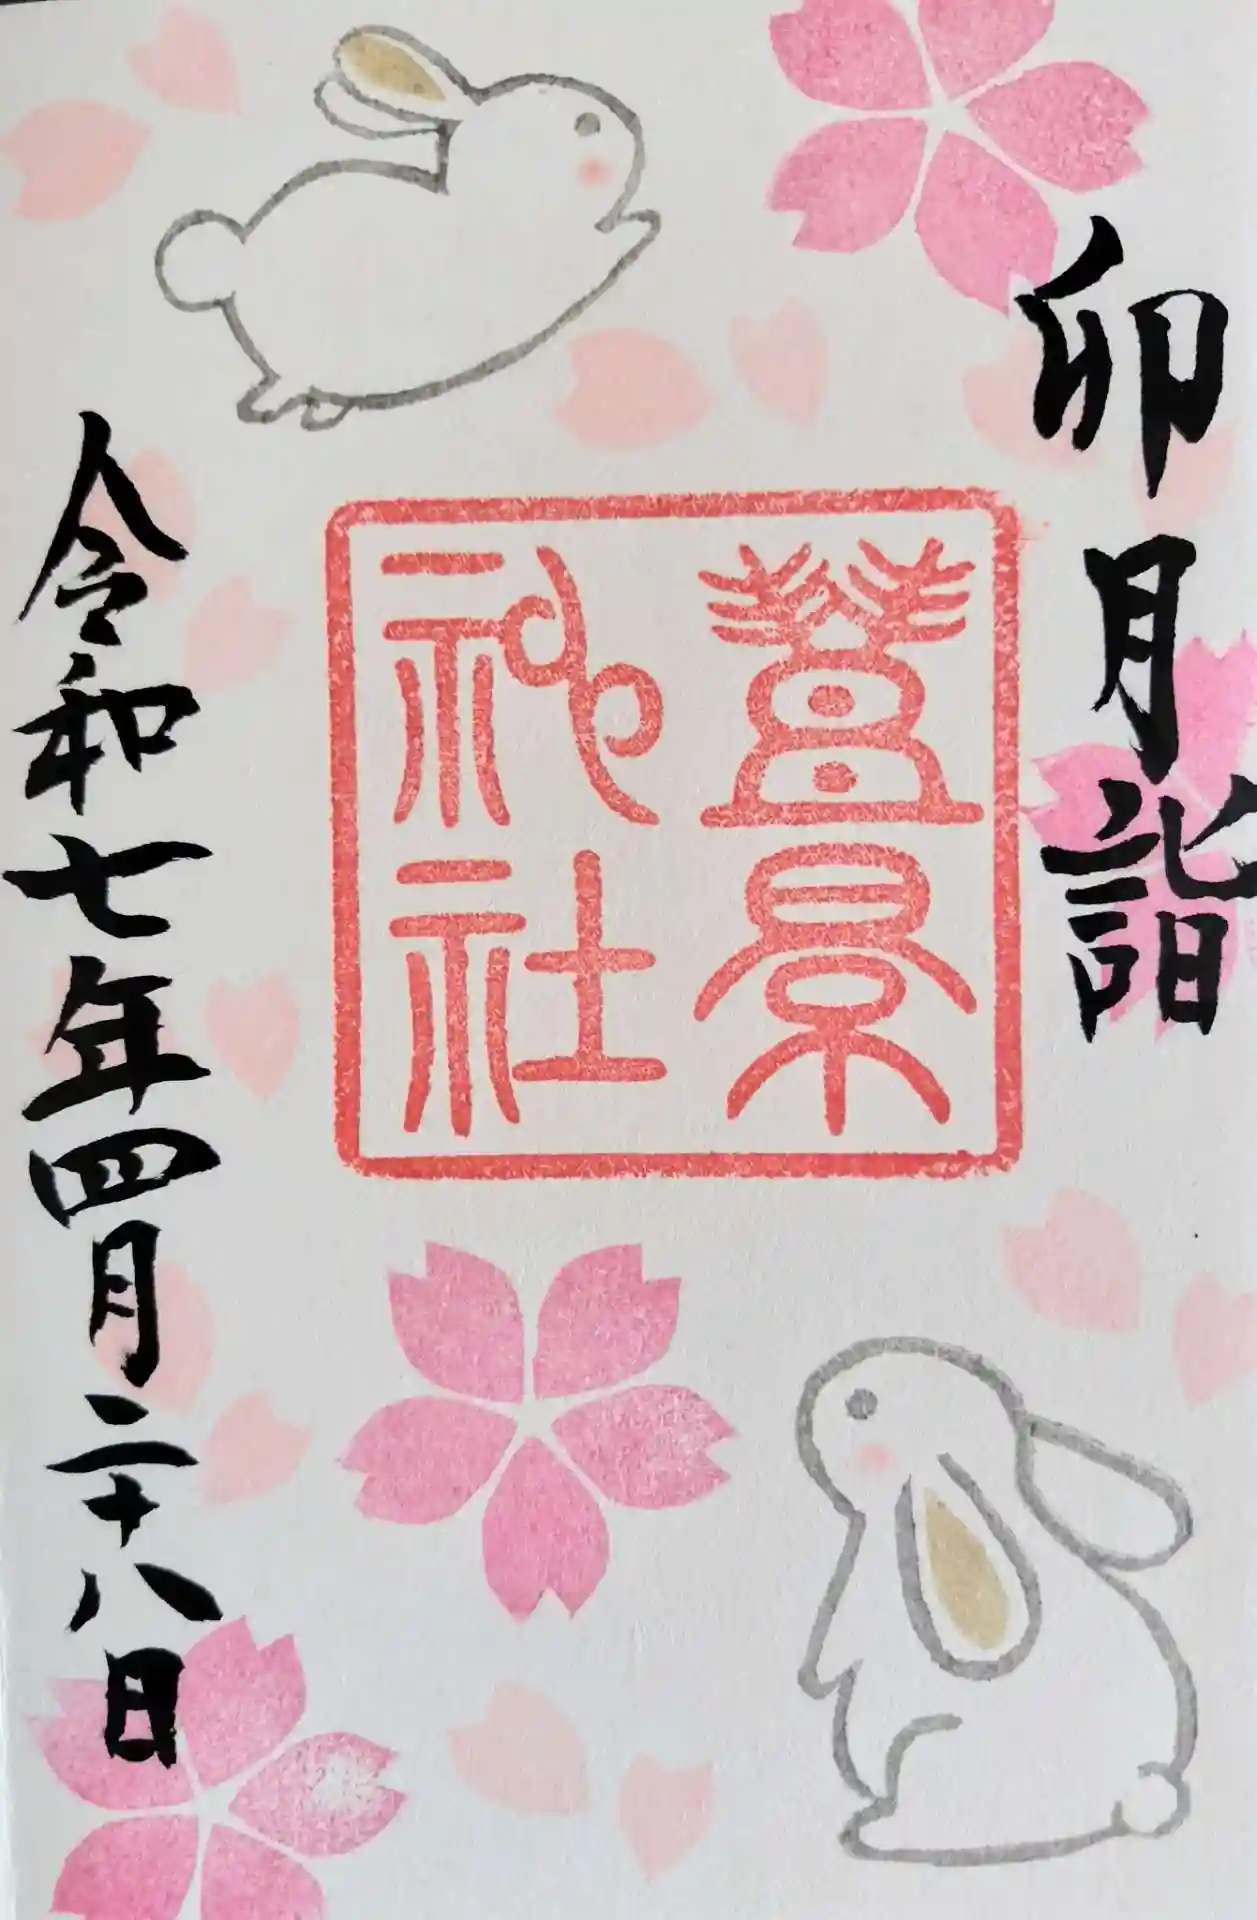 卯月詣
豊景
神社
令和七年四月二十八日